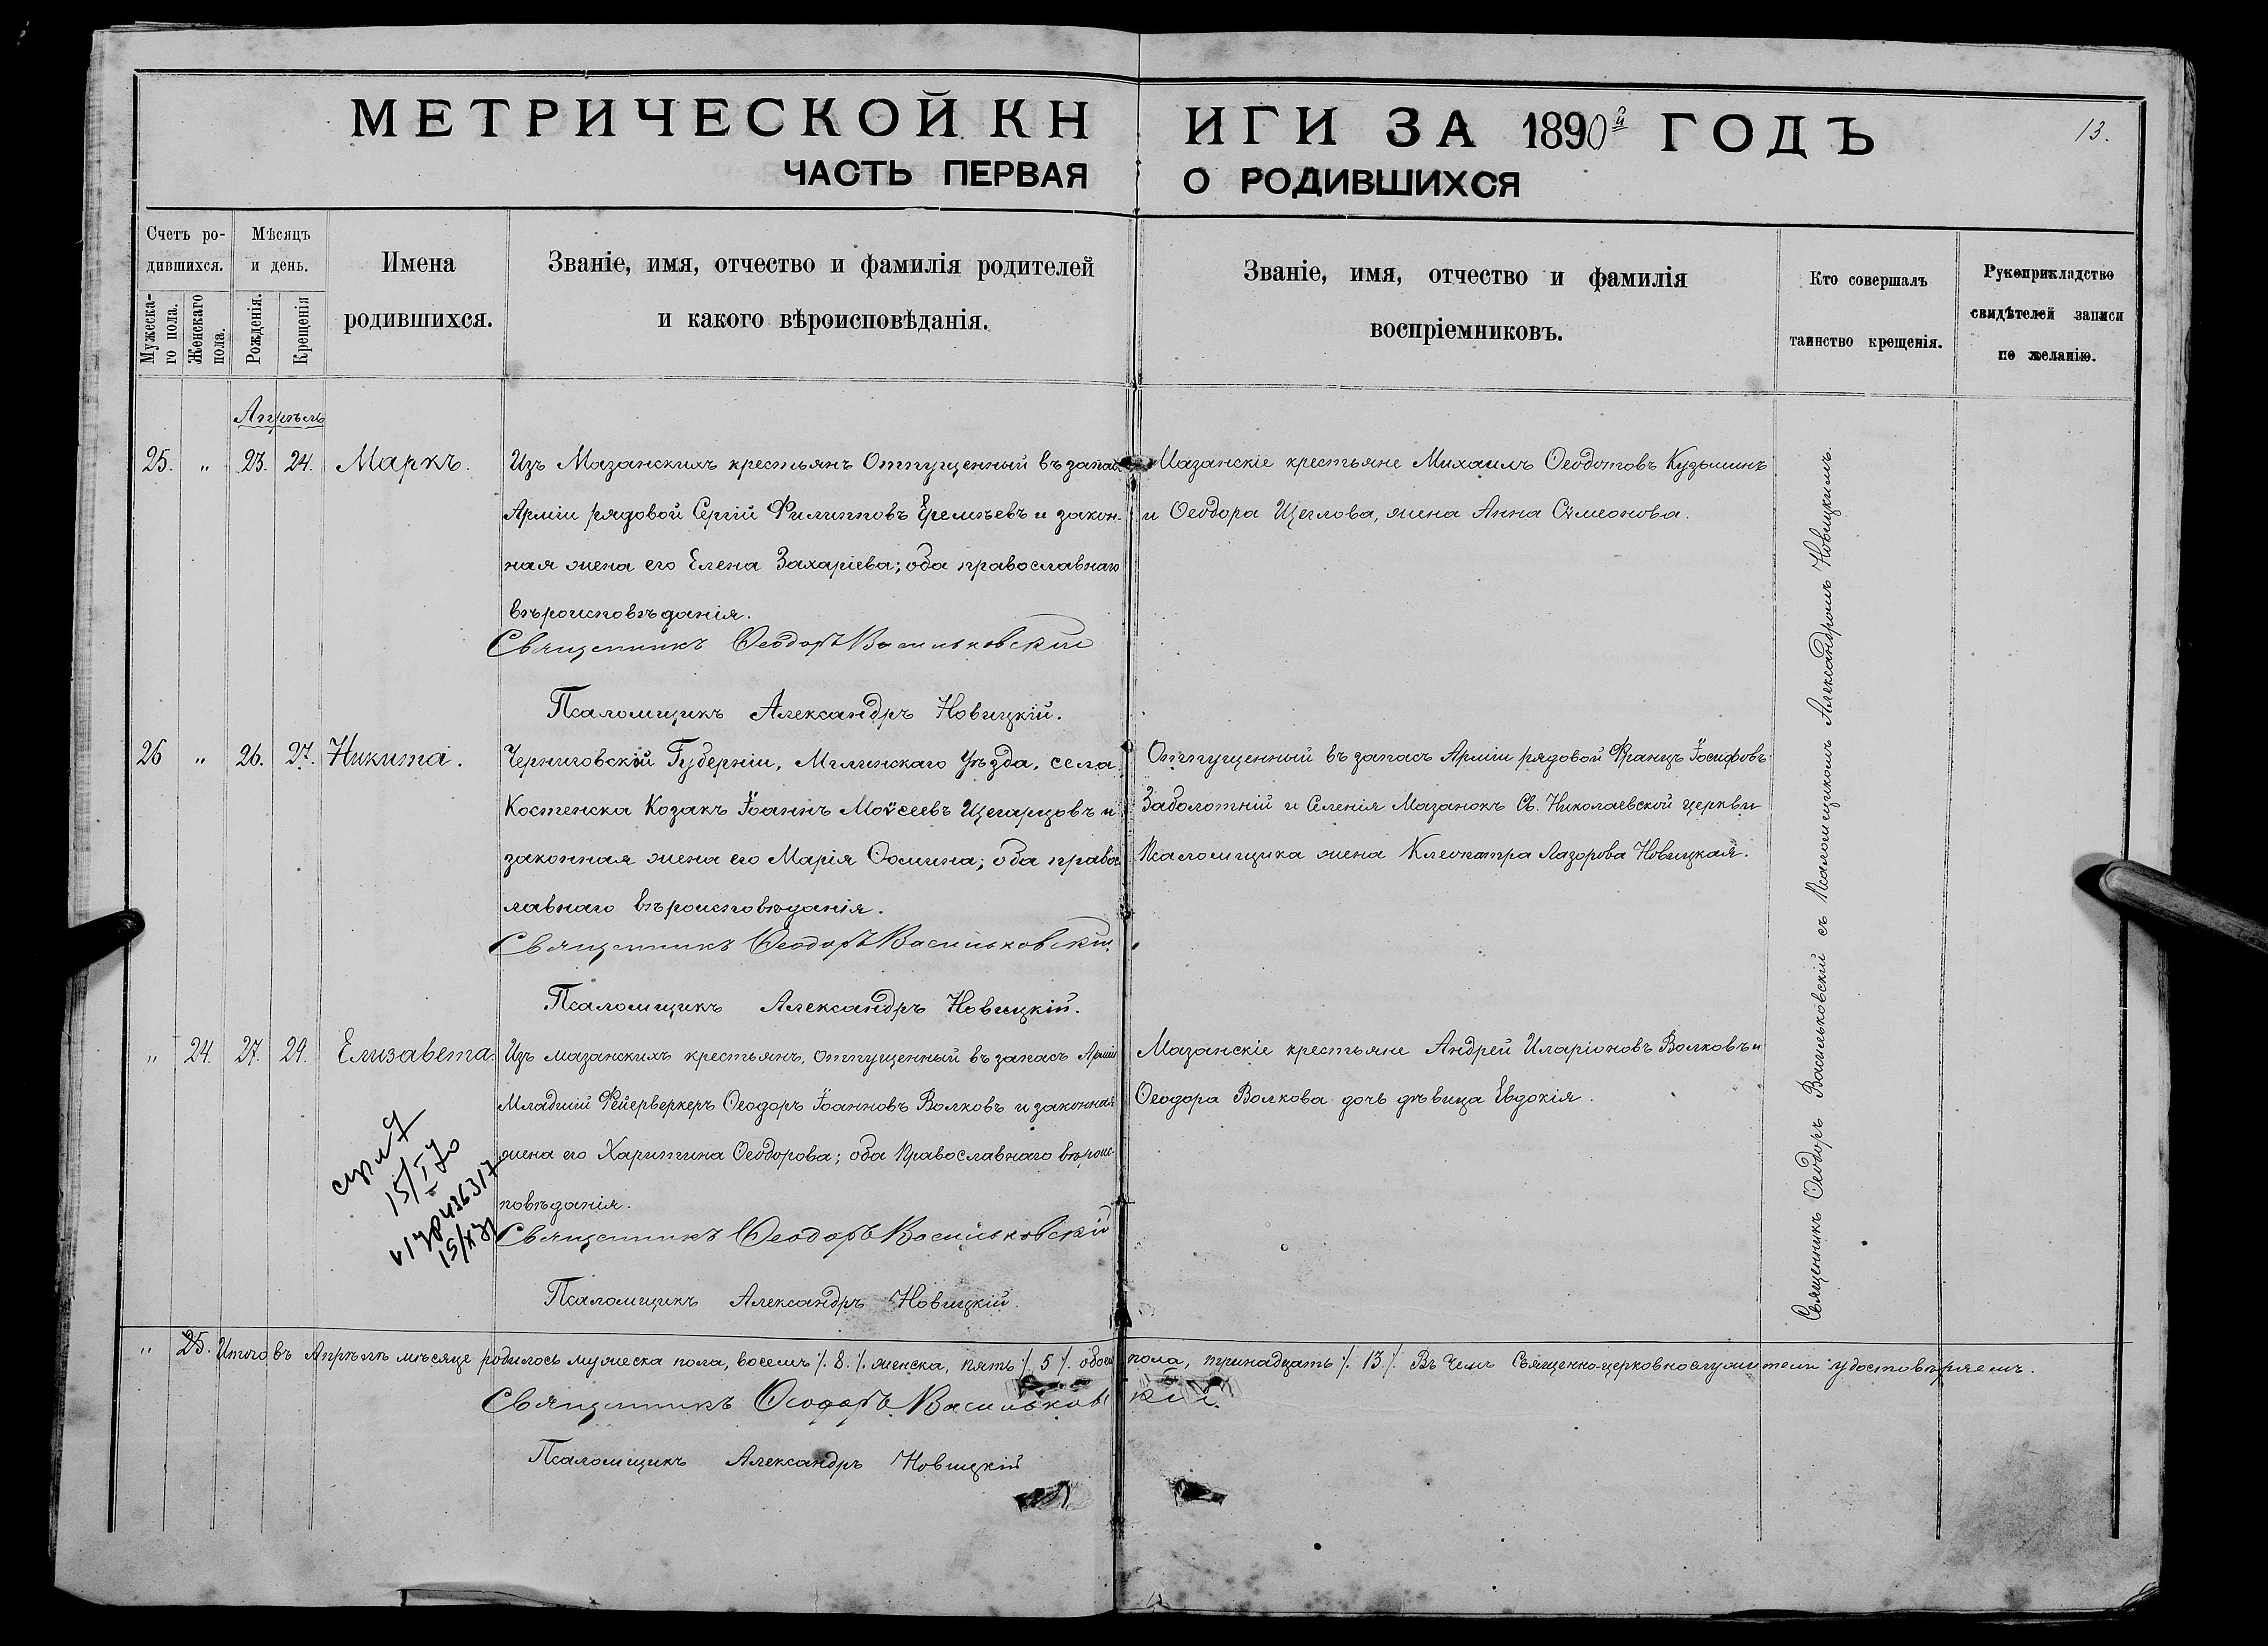 МЕТРИЧЕСКОЙ КНИГИ ЗА 1890й ГОДЪ
13.
ЧАСТЬ ПЕРВАЯ О РОДИВШИХСЯ
Счетъ ро-
дившихся.
Мужеска-
го пола.
Женскаго
пола.
Мѣсяцъ
и день.
Рожденія.
Крещенія
Имена
родившихся.
Званіе, имя, отчество и фамилія родителей
и какого вѣроисповѣданія.
Званіе, имя, отчество и фамилія
воспріемниковъ.
Кто совершалъ
таинство крещенія.
Рукоприкладство
свидѣтелей записи
по желанію.
Апрѣль
25. " 23. 24. Маркъ.
Изъ Мазанскихъ крестьянъ Отпущенный въ запасъ
Арміи рядовой Сергій Филипповъ Еремѣевъ и закон-
ная жена его Елена Захаріева; оба православнаго
вѣроисповѣданія.
Священникъ Ѳеодоръ Васильковскій
Псаломщикъ Александръ Новицкій.
Мазанскіе крестьяне Михаилъ Ѳеодотовъ Кузьминъ
и Ѳеодора Щеглова, жена Анна Сѵмеонова.
26 " 26. 27. Никита.
Черниговской Губерніи, Мглинскаго Уѣзда, села
Костенска Козакъ Іоаннъ Моѵсеевъ Щегарцовъ и
законная жена его Марія Ѳомина; оба правос
лавнаго вѣроисповѣданія.
Священникъ Ѳеодоръ Васильковскій
Псаломщикъ Александръ Новицкій.
Отпущенный въ запасъ Арміи рядовой Францъ Іосифовъ
Заболотній и Селенія Мазанокъ Св. Николаевской церкви
Псаломщика жена Клеопатра Лазорова Новицкая.
" 24. 27. 29. Елизавета.
Изъ мазанскихъ крестьянъ, отпущенный въ запасъ Арміи
Младшій Фейерверкеръ Ѳеодоръ Іоанновъ Волковъ и законная
жена его Харитина Ѳеодорова; оба Православнаго вѣроис-
повѣданія.
Священникъ Ѳеодоръ Васильковскій
Псаломщикъ Александръ Новицкій.
Мазанскіе крестьяне Андрей Иларіоновъ Волковъ и
Ѳеодора Волкова дочь дѣвица Евдокія.
15/I 70
Священникъ Ѳеодоръ Васильковскій съ Псаломщикомъ Александромъ Новицкимъ.
" 25. Итого въ Апрѣлѣ мѣсяце родилось мужеска пола, восемь /. 8. /. женска, пять /. 5 /. обоего пола, тринадцать /. 13 /. Въ чемъ Священно-церковнослужители удостовѣряемъ.
Священникъ Ѳеодоръ Васильковскій.
Псаломщикъ Александръ Новицкій